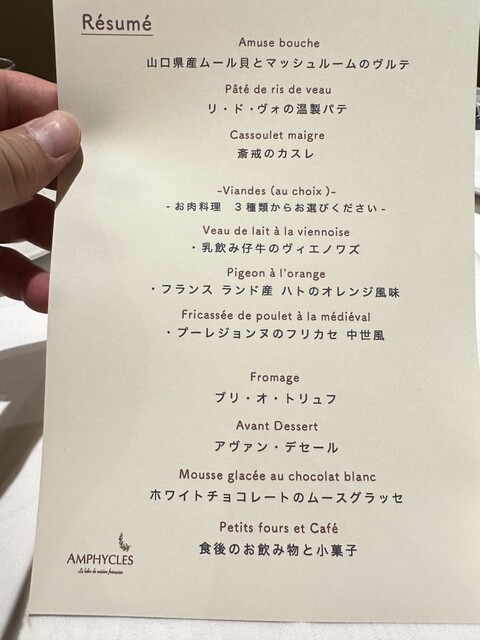 Résumé
Amuse bouche
山口県産ムール貝とマッシュルームのヴルテ
Pâté de ris de veau
リ・ド・ヴォの温製パテ
Cassoulet maigre
斎戒のカスレ
-Viandes (au choix )-
- お肉料理　３種類からお選びください -
Veau de lait à la viennoise
・乳飲み仔牛のヴィエノワズ
Pigeon à l'orange
・フランス ランド産 ハトのオレンジ風味
Fricassée de poulet à la médiéval
・プーレジョンヌのフリカセ 中世風
Fromage
ブリ・オ・トリュフ
Avant Dessert
アヴァン・デセール
Mousse glacée au chocolat blanc
ホワイトチョコレートのムースグラッセ
Petits fours et Café
食後のお飲み物と小菓子
AMPHYCLES
Le labo de cuisine française